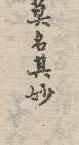 莫名其妙